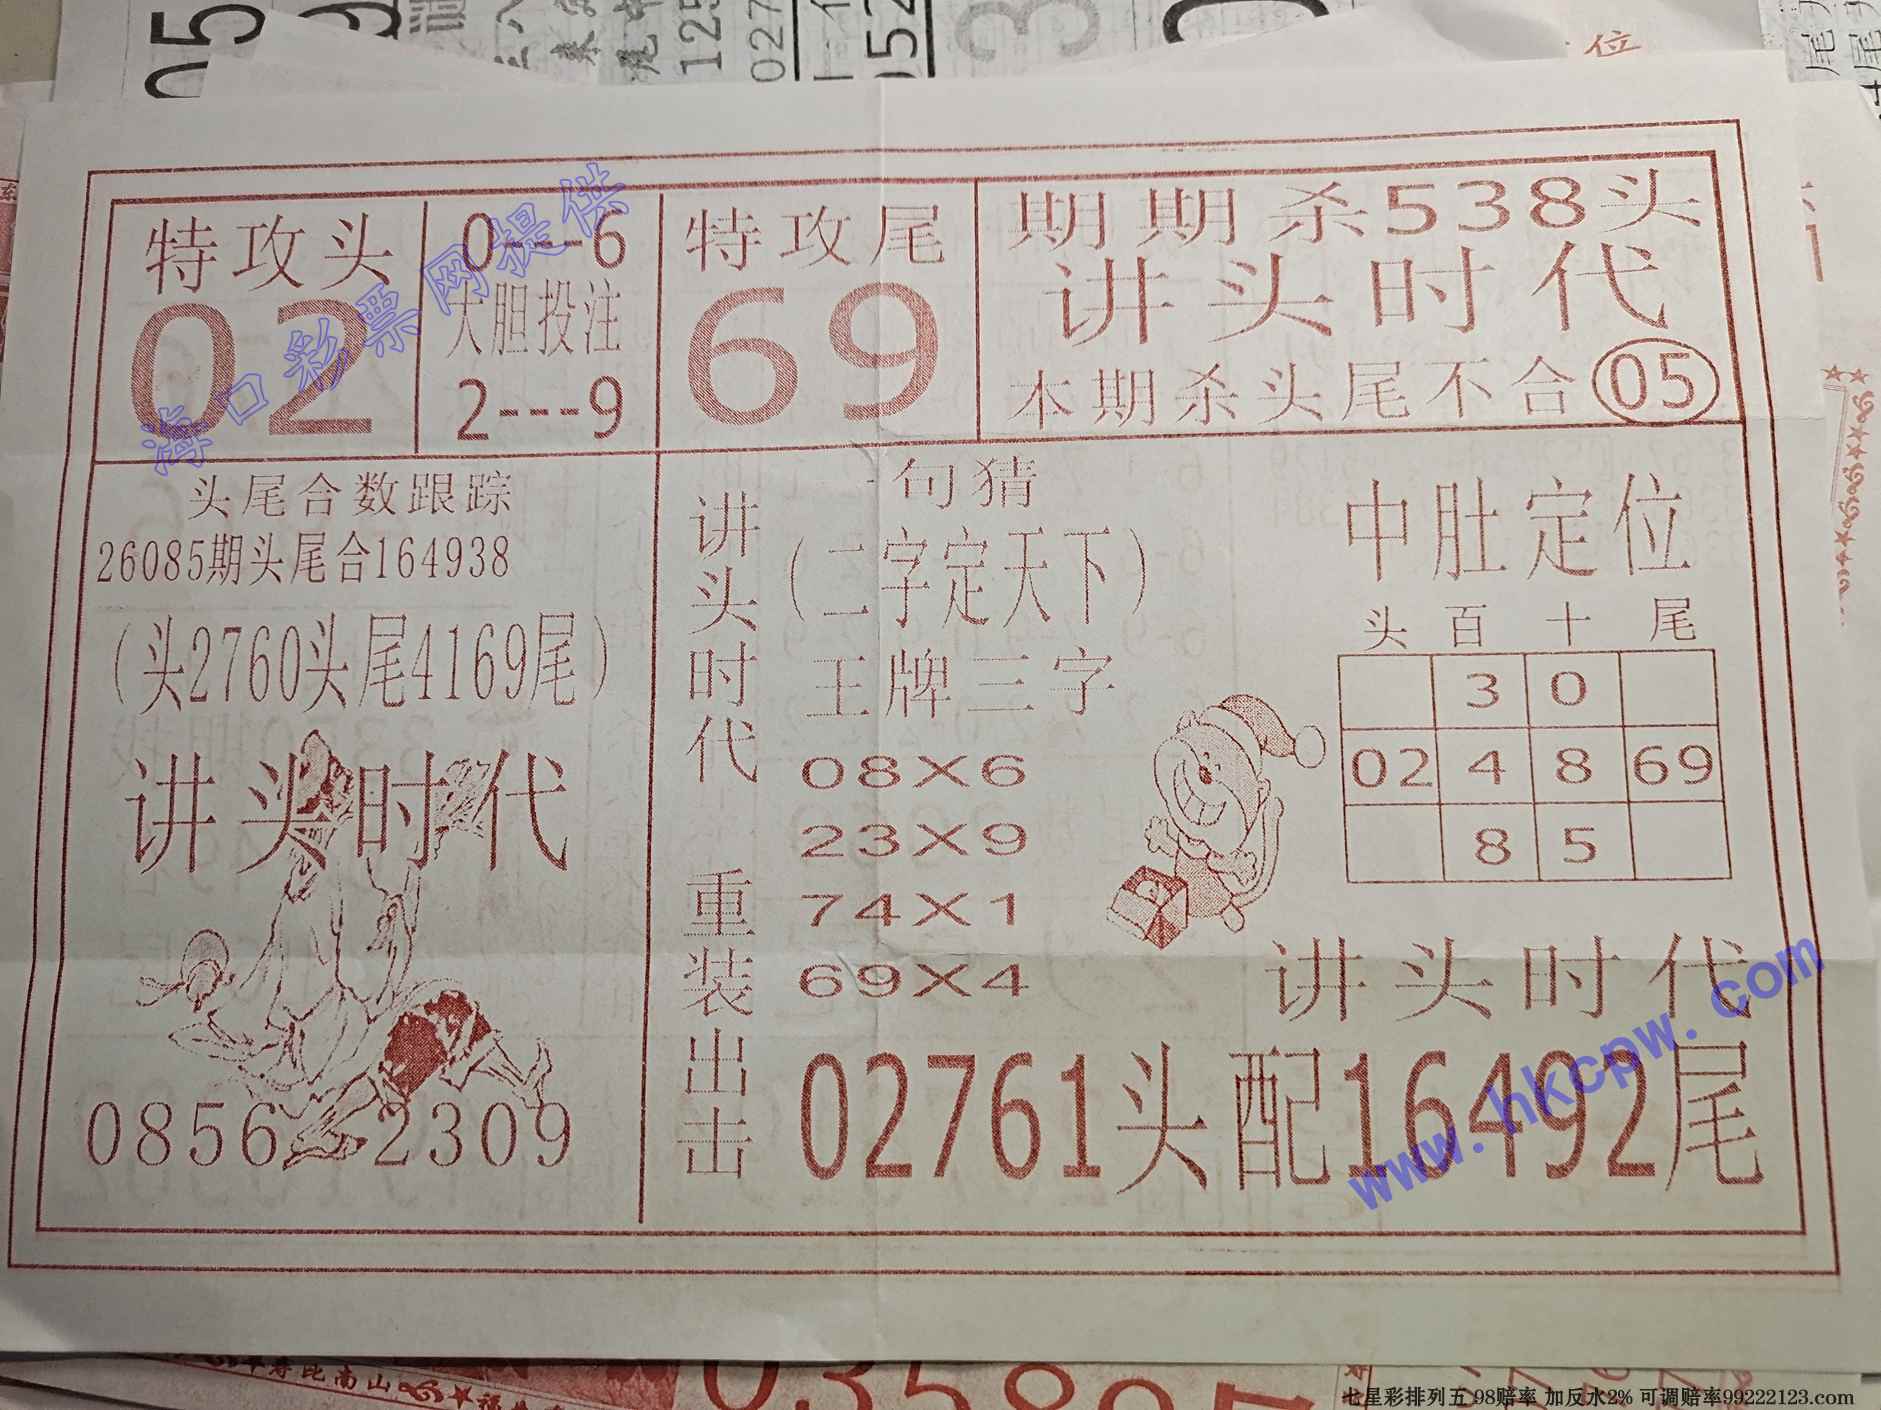 特攻头
02
0---6
大胆投注
2---9
特攻尾
69
期期杀538头
讲头时代
本期杀头尾不合05
头尾合数跟踪
26085期头尾合164938
(头2760头尾4169尾)
讲头时代
0856 2309
讲头时代 重装出击
一句猜
(二字定天下)
王牌三字
08X6
23X9
74X1
69X4
中肚定位
头 百 十 尾
3 0
02 4 8 69
8 5
讲头时代
02761头配16492尾
海口彩票网提供
www.hkcpw.com
七星彩排列五 98赔率 加反水2% 可调赔率99222123.com
寿比南山
位